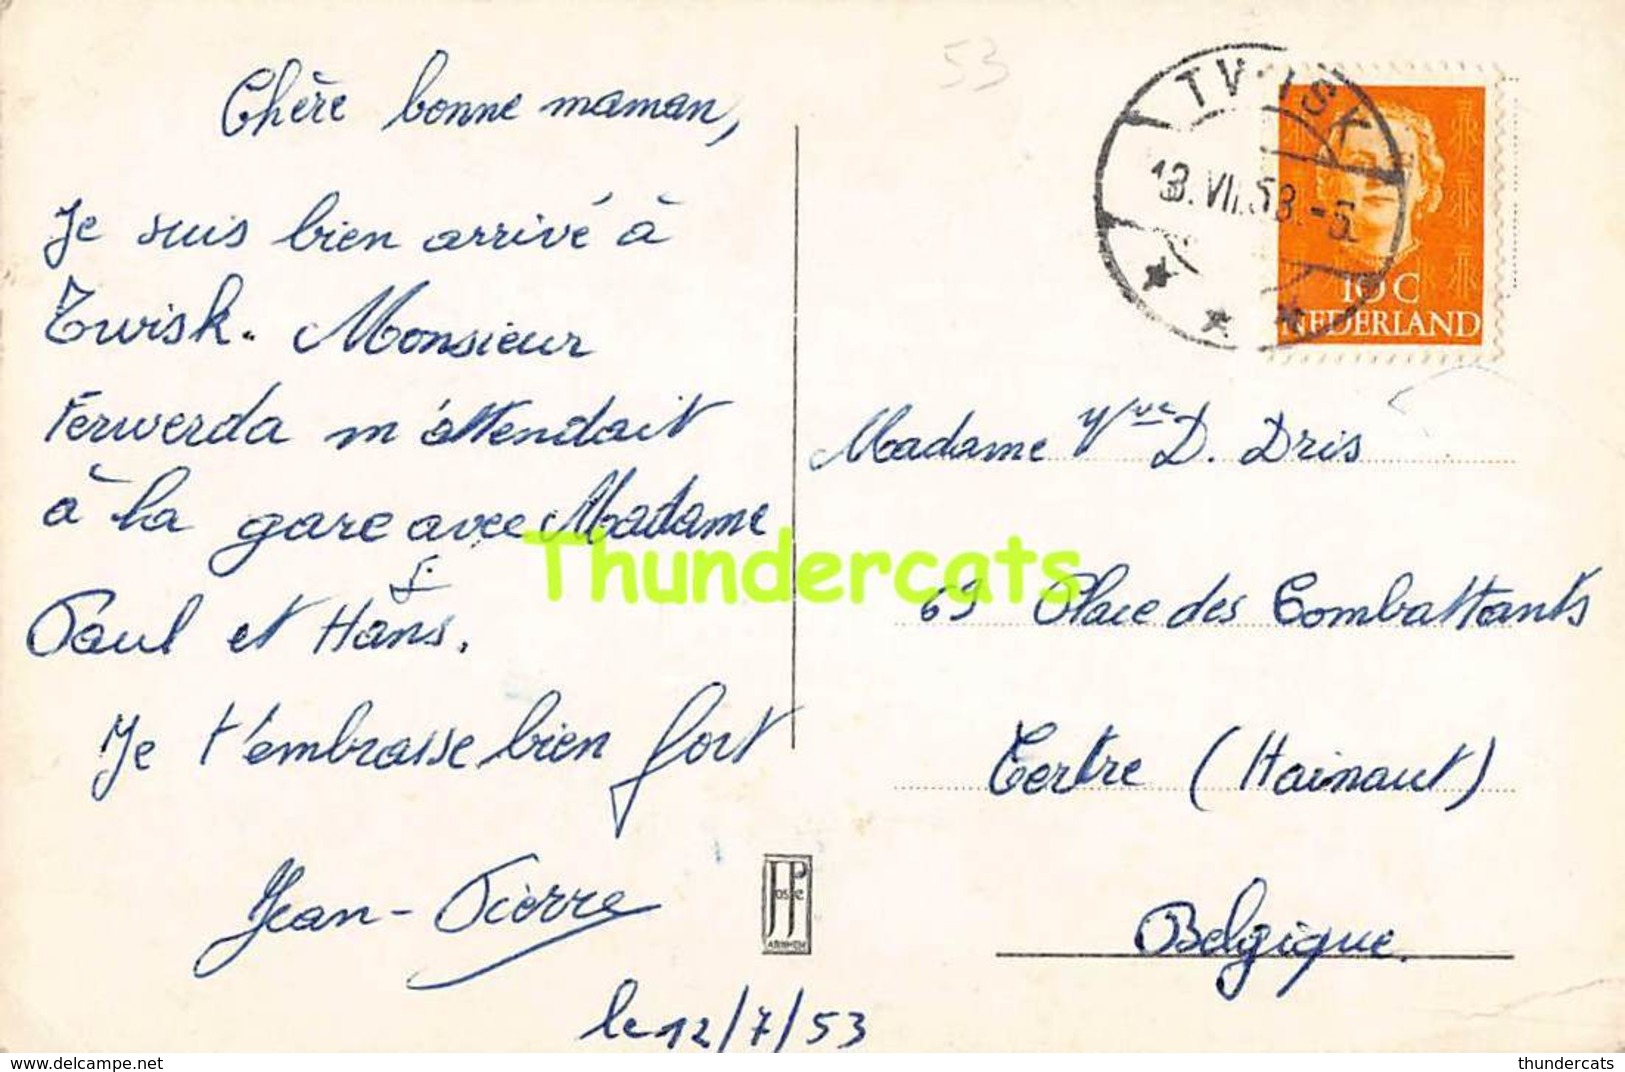 53
Chère bonne maman,
Je suis bien arrivé à
Twisk. Monsieur
Ferwerda m'attendait
à la gare avec Madame
Paul et Hans.
Je t'embrasse bien fort
Jean-Pierre
le 12/7/53
TWISK
13.VII.53.-6.
10C
NEDERLAND
Madame Vve D. Dris
69 Place des Combattants
Tertre (Hainaut)
Belgique.
JosPe
ARNHEM
Thundercats
www.delcampe.net
thundercats